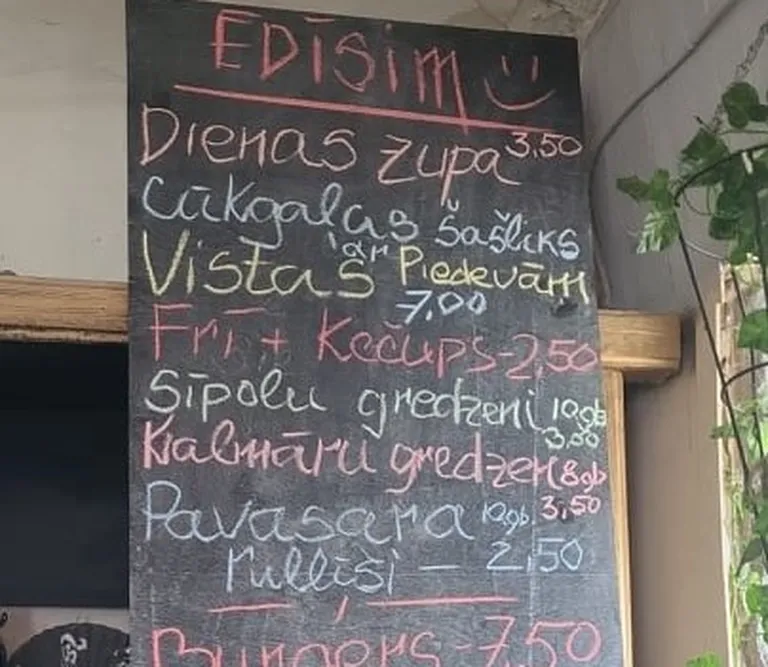 EDĪSIM
Dienas zupa 3,50
Cūkgaļas šašliks
Vistas ar Piedevām
7,00
Frī + Kečups - 2,50
Sīpolu gredzeni 10gb
3,00
Kalmāru gredzeni 8gb
3,50
Pavasara 10gb.
rullīši - 2,50
Burgers - 7,50